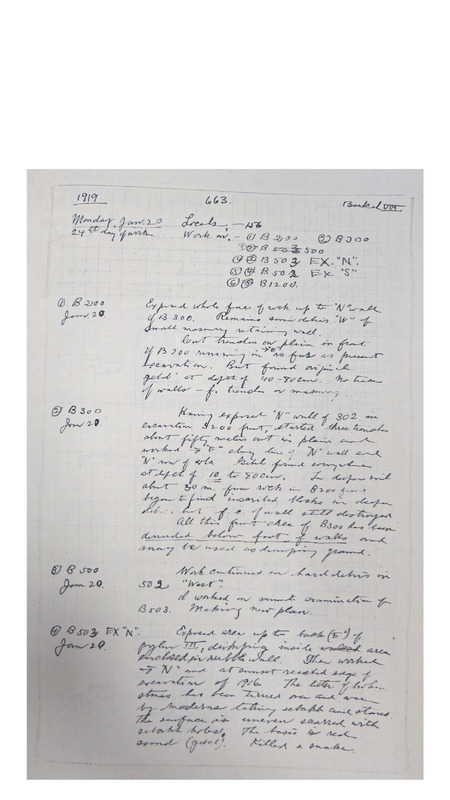 1919
663.
Barkal VIII.
Monday, Jan. 20 Locals, - 156
24th day of work. Work on. - ① B 200 ② B 300
③ B 500
④ B 503 EX. "N".
⑤ B 502 EX "S"
⑥ B 1200.
① B 200 Exposed whole face of rock up to "N" wall
Jan 20 of B 300. Remains some debris "W" of
small masonry retaining wall.
Cut trenches on plain in front
of B 200 running in as far as present
excavation. But found original
gebel at depth of 40-80 cm. No trace
of walls - trenches or masonry
② B 300 Having exposed "N" wall of 302 in
Jan 20 excavation B 200 front, started three trenches
about fifty meters out in plain and
worked "E" along line of "N" wall and
"N" row of cols. Gebel found everywhere
at depth of 10 to 80 cm. In deeper soil
about 30 m. from rock in B 200 front
began to find inscribed blocks in deeper
debris but of wall still destroyed
All this front area of B 300 has been
denuded below foot of walls and
may be used as dumping ground.
③ B 500 Work continued on hard debris in
Jan 20. 502 "West".
I worked on minute examination of
B 503. Making new plan.
④ B 503 EX "N". Exposed area up to back ("E") of
Jan 20. pylon III, developing inside area
enclosed in rubble wall. Then worked
"N" and at sunset reached edge of
excavation of 1916. The litter of broken
stones has been turned over and over
by moderns taking sebakh and stones.
The surface is uneven scarred with
sebakh holes. The basis is red
sand (gebel). Killed a snake.